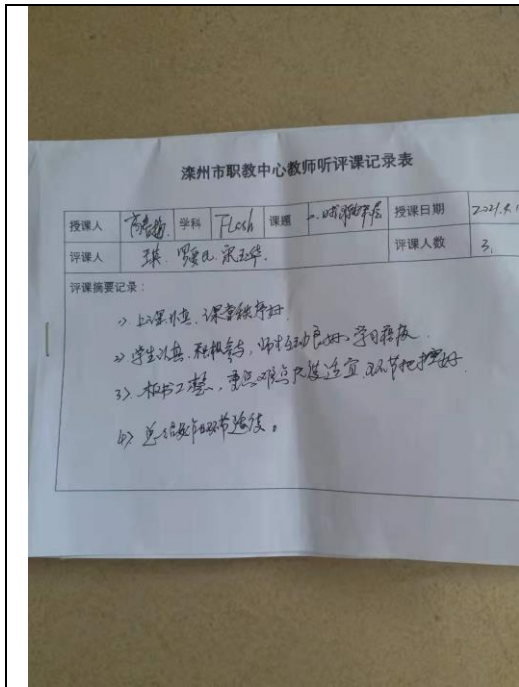 滦州市职教中心教师听评课记录表
授课人 学科 Flash 课题 授课日期 2021.4.1
评课人 王英. 罗爱民. 宋玉华. 评课人数 3.
评课摘要记录:
1) 上课认真、课堂秩序好
2) 学生认真、积极参与,师生互动良好、学习积极.
3) 板书工整,重点难点 适宜,环节把握好
4) 总结 环节 。